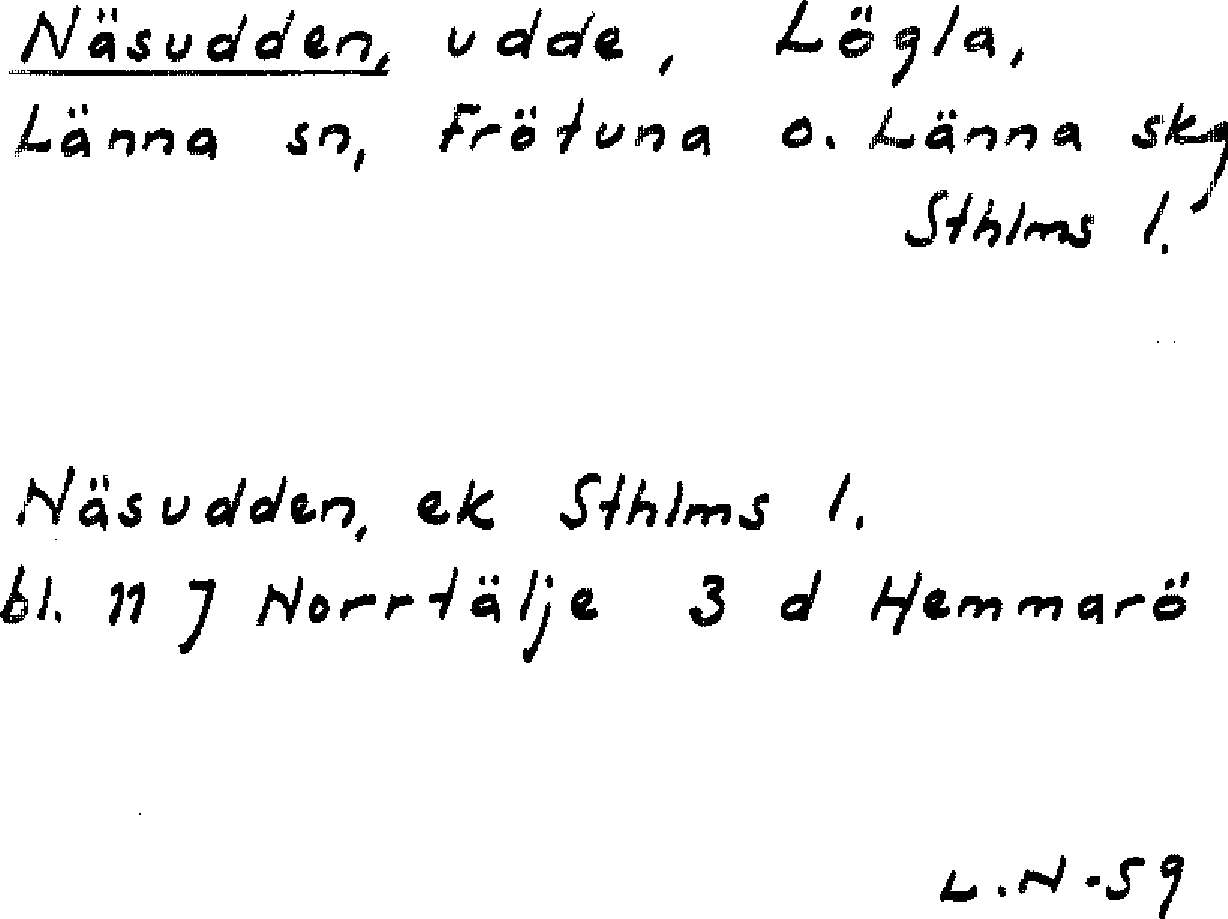 Näsudden, udde, Lögla,
Länna sn, Frötuna o. Länna skg
Sthlms l.
Näsudden, ek Sthlms l.
bl. 11 J Norrtälje 3 d Hemmarö
L.N-59